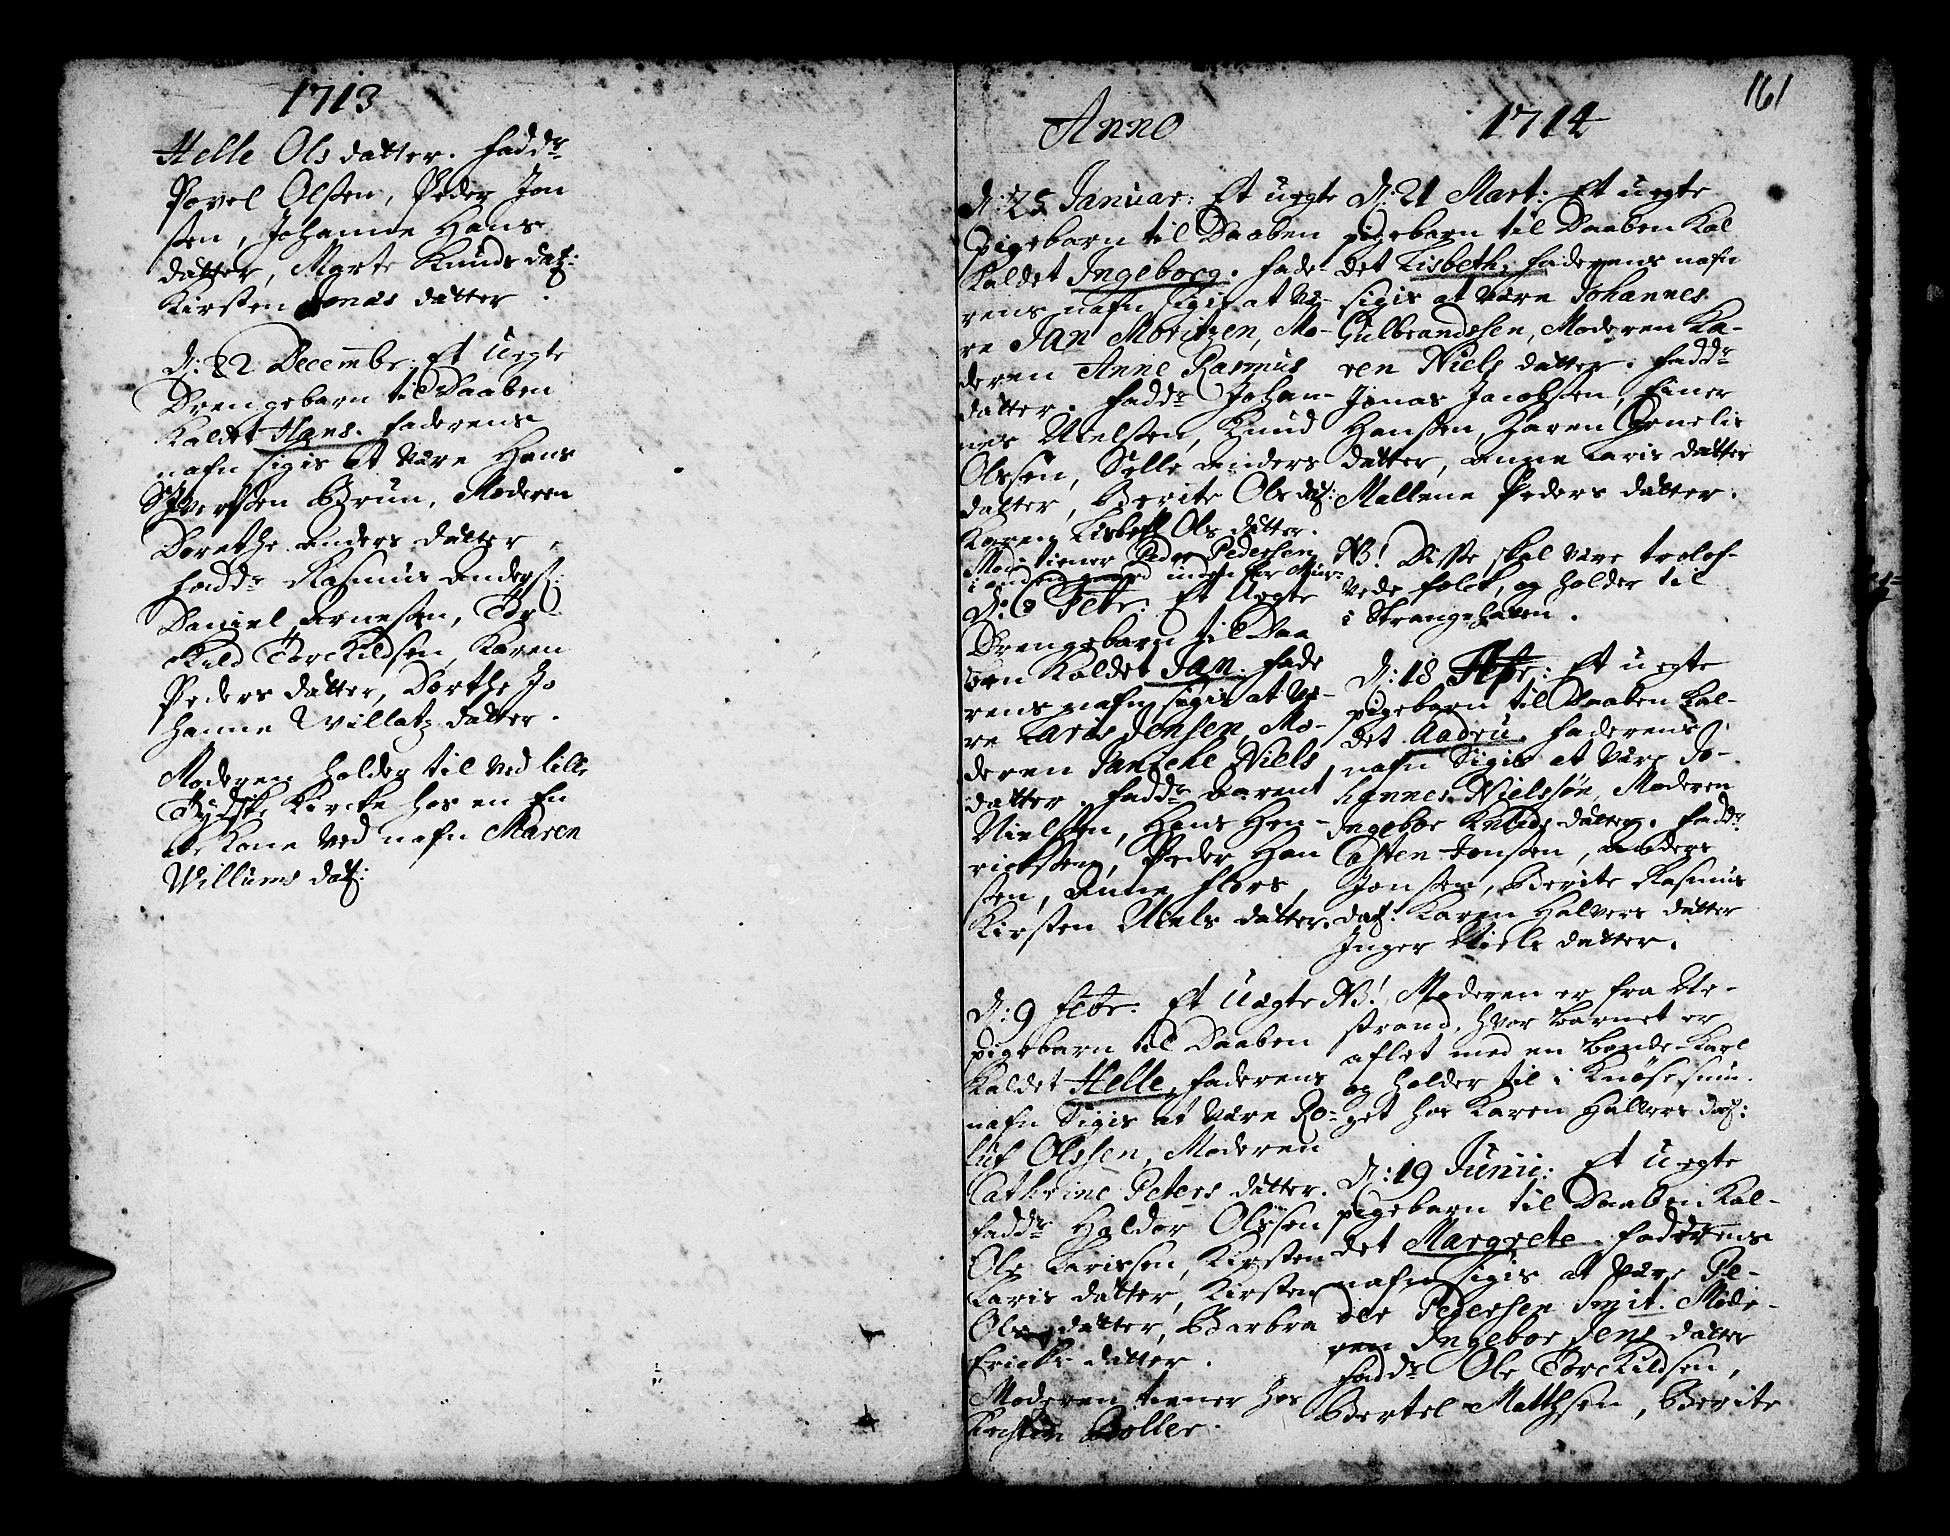 1713
Helle Ols datter. faddr
Povel Olssen, Peder Jon
ssen, Johanne Hans
datter, Marte Knuds dat:
Kirsten Jonas datter.
d: 22 Decembr: Et Uegte
Drengebarn til Daaben
Kaldet Hans. Faderens
nafn sigis at være Hans
Brun, Moderen
Dorethe Anders datter,
faddr Rasmus Anders:
Daniel Arnessen, Tor
Kild Torckildsen, Karen
Peders datter, Dorthe Jo
hanne Willatz datter.
Moderen holder til ved lille
Tydske Kircke hos en En
cke Kone ved nafn Maren
Willums dat:
161
Anno 1714
d: 25 Januar: Et uegte
pigebarn til Daaben
Kaldet Ingeborg. Fade-
rens nafn sigis at væ-
re Jan Moritzen, Mo-
deren Anne Rasmus
datter. faddr Johan-
nes Nielssen, Knud
Olssen, Sille Anders
datter, Berite Ols dat:
Karen Lisbeth Ols datter.
Mod: tiener Peder Pedersen
d: 8 Febr: Et Uegte
Drengebarn til Daa
ben Kaldet Jan. Fade
rens nafn sigis at væ-
re Lars Jensen, Mo-
deren Janicke Niels
datter. faddr Barent
Nielssen, Hans Hen-
richssen, Peder Han
ssen, Anne Flors,
Kirsten Niels datter.
d: 9 Febr: Et Uægte
pigebarn til Daaben
Kaldet Helle, Faderens
nafn Sigis at være Ro-
luf Olssen, Moderen
Cathrine Peters datter.
faddr Haldor Olssen
Ole Larissen, Kirsten
Laris datter, Kirsten
Ols datter, Barbra
Ericks datter.
Moderen tiener hos
Kirsten Boller.
d: 21 Mart: Et uegte
pigebarn til Daaben Kal
det Lisbeth, Faderens nafn
sigis at være Johannes
Gulbrandssen, Moderen Ka-
ren Niels datter. faddr
Jonas Jacobssen, Einer
Hanssen, Karen Cornelis
datter, Anne Laris datter
Mallene Peders datter.
NB! Disse skal være trolof-
vede folck, og holder til
i Strangehaven.
d: 18 Apr: Et uegte
pigebarn til Daaben Kal-
det Aadru. Faderens
nafn Sigis at være Jo-
hannes Nielssøn, Moderen
Ingebor Knuds datter. faddr
Casten Jonssen, Anders
Jonssen, Berite Rasmus
dat: Karen Halvors datter
Inger Niels datter.
NB! Moderen er fra Ue-
strand, hvor barnet er
aflet med en bonde-Karl
og holder til i Knøsesmu-
get hos Karen Halvors dat:
d: 19 Junii: Et Uegte
pigebarn til Daaben Kal-
det Margrete. Faderens
nafn sigis at være Pe-
der Pedersen Smit. Mode-
ren Ingebor Jens datter
faddr Ole Torckildsen,
Bertel Matthsen, Berite